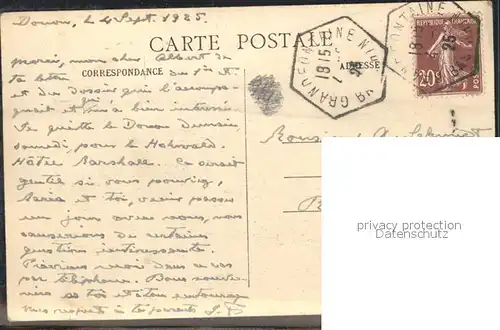 Donon, le 4 Sept. 1925.
CARTE POSTALE
CORRESPONDANCE
ADRESSE
Merci, mon cher Albert de
ta lettre du 1er et
et du dossier qui l'accompa-
gnait et m'a bien intéressé.
Je quitte le Donon demain,
samedi, pour le Hohwald.
Hôtel Marshall. Ce serait
gentil si vous pouviez,
Maria et toi, venir passer
un jour avec nous, nous
causerions de certaines
questions intéressantes.
Préviens moi dans ce cas
par téléphone. Bons souve-
nirs à toi et à ton entourage
mes respects à tes parents
GRANDFONTAINE
18 15
4
25
REPUBLIQUE FRANÇAISE
20c
POSTES
Monsieur A.
privacy protection
Datenschutz